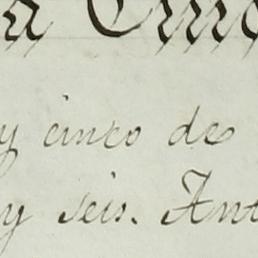 y cinco de
y seis. Ant